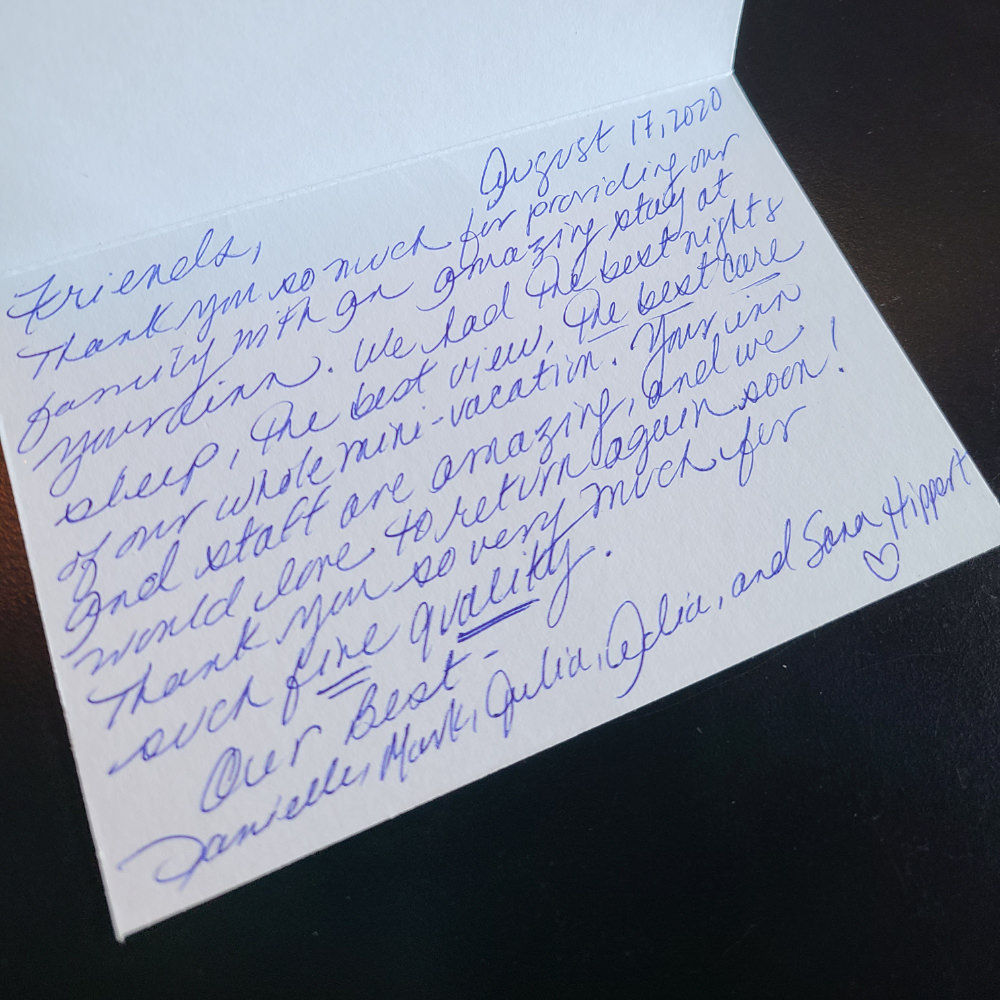 August 17, 2020
Friends,
Thank you so much for providing our
family with an amazing stay at
your inn. We had the best nights
sleep, the best view, the best care
of our whole mini-vacation. Your inn
and staff are amazing, and we
would love to return again soon!
Thank you so very much for
such fine quality.
Our Best -
Danielle, Mark, Julia, Lydia, and Sara Hippert